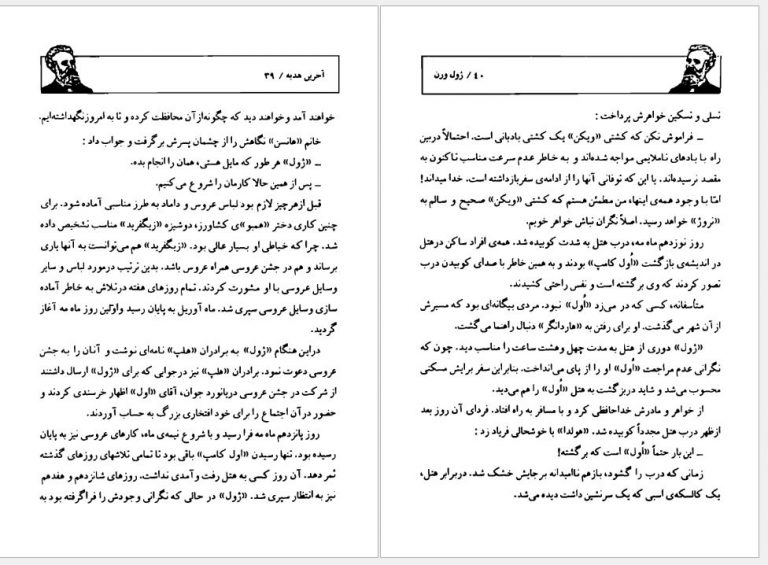 آخرین هدیه / ۳۹
خواهند آمد و خواهند دید که چگونه از آن محافظت کرده و تا به امروز نگهداشته‌ایم.
خانم «هانسن» نگاهش را از چشمان پسرش برگرفت و جواب داد :
ــ «ژول» هر طور که مایل هستی، همان را انجام بده.
ــ پس از همین حالا کارمان را شروع می‌کنیم.
قبل از هرچیز لازم بود لباس عروس و داماد به طرز مناسبی آماده شود. برای
چنین کاری دختر «همبو»ی کشاورز، دوشیزه «زیگفرید» مناسب تشخیص داده
شد. چرا که خیاطی او بسیار عالی بود. «زیگفرید» هم می‌توانست به آنها یاری
برساند و هم در جشن عروسی همراه عروس باشد. بدین ترتیب در مورد لباس و سایر
وسایل عروسی با او مشورت کردند. تمام روزهای هفته در تلاش به خاطر آماده
سازی وسایل عروسی سپری شد. ماه آوریل به پایان رسید و اوّلین روز ماه مه آغاز
گردید.
در این هنگام «ژول» به برادران «هلپ» نامه‌ای نوشت و آنان را به جشن
عروسی دعوت نمود. برادران «هلپ» نیز در جوابی که برای «ژول» ارسال داشتند
از شرکت در جشن عروسی دریانورد جوان، آقای «اول» اظهار خرسندی کردند و
حضور در آن اجتماع را برای خود افتخاری بزرگ به حساب آوردند.
روز پانزدهم ماه مه فرا رسید و با شروع نیمه‌ی ماه، کارهای عروسی نیز به پایان
رسیده بود. تنها رسیدن «اول کامپ» باقی بود تا تمامی تلاشهای روزهای گذشته
ثمر دهد. آن روز کسی به هتل رفت و آمدی نداشت. روزهای شانزدهم و هفدهم
نیز به انتظار سپری شد. «ژول» در حالی که نگرانی وجودش را فراگرفته بود به
۴۰ / ژول ورن
تسلی و تسکین خواهرش پرداخت :
ــ فراموش نکن که کشتی «ویکن» یک کشتی بادبانی است. احتمالاً در بین
راه با بادهای ناملایمی مواجه شده‌اند و به خاطر عدم سرعت مناسب تاکنون به
مقصد نرسیده‌اند. یا این که توفانی آنها را از ادامه‌ی سفر بازداشته است. خدا میداند!
امّا با وجود همه‌ی اینها، من مطمئن هستم که کشتی «ویکن» صحیح و سالم به
«نروژ» خواهد رسید. اصلاً نگران نباش خواهر خوبم.
روز نوزدهم ماه مه، درب هتل به شدت کوبیده شد. همه‌ی افراد ساکن در هتل
در اندیشه‌ی بازگشت «اُول کامپ» بودند و به همین خاطر با صدای کوبیدن درب
تصور کردند که وی برگشته است و نفس راحتی کشیدند.
متأسفانه، کسی که در می‌زد «اُول» نبود. مردی بیگانه‌ای بود که مسیرش
از آن شهر می‌گذشت. او برای رفتن به «هاردانگر» دنبال راهنما می‌گشت.
«ژول» دوری از هتل به مدت چهل وهشت ساعت را مناسب دید. چون که
نگرانی عدم مراجعت «اُول» او را از پای می‌انداخت. بنابراین سفر برایش مسکنی
محسوب می‌شد و شاید در بزگشت به هتل «اُول» را هم می‌دید.
از خواهر و مادرش خداحافظی کرد و با مسافر به راه افتاد. فردای آن روز بعد
ازظهر درب هتل مجدداً کوبیده شد. «هولدا» با خوشحالی فریاد زد :
ــ این بار حتماً «اُول» است که برگشته!
زمانی که درب را گشود، بازهم ناامیدانه بر جایش خشک شد. در برابر هتل،
یک کالسکه‌ی اسبی که یک سرنشین داشت دیده می‌شد.